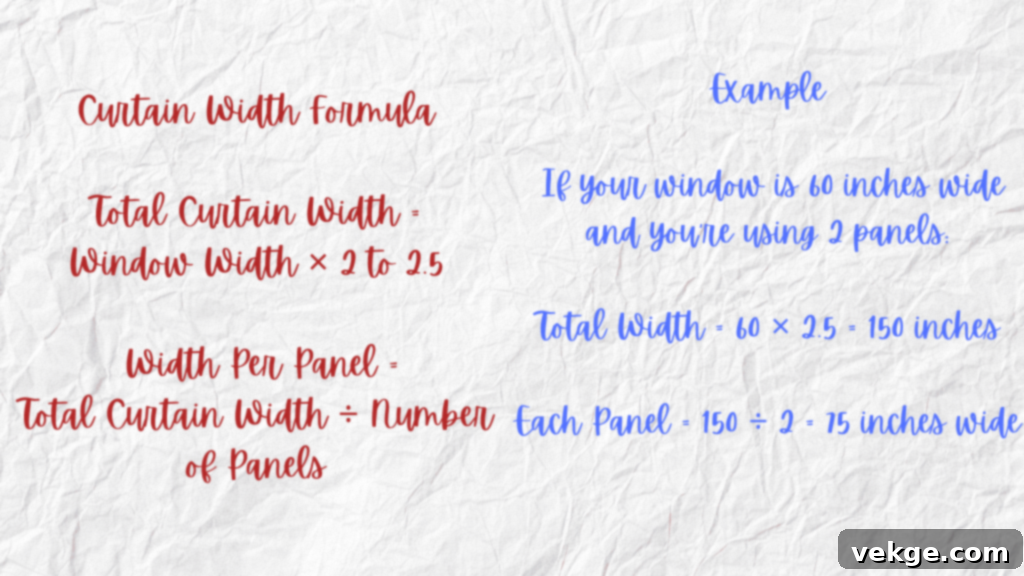 Curtain Width Formula
Total Curtain Width =
Window Width × 2 to 2.5
Width Per Panel =
Total Curtain Width ÷ Number
of Panels
Example
If your window is 60 inches wide
and you're using 2 panels:
Total Width = 60 × 2.5 = 150 inches
Each Panel = 150 ÷ 2 = 75 inches wide
vekge.com